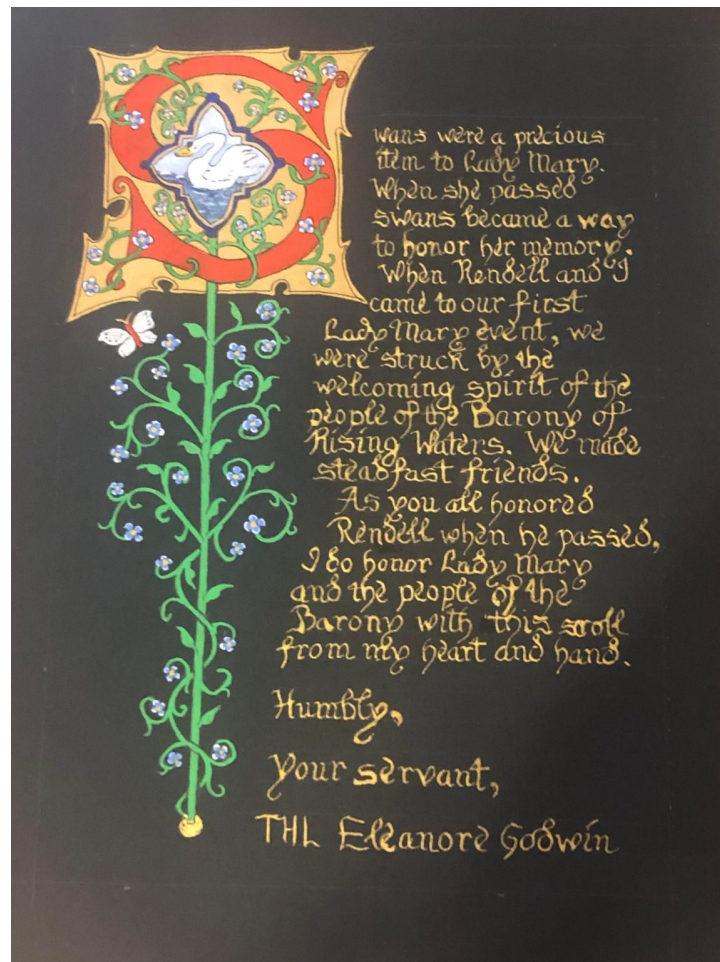 Swans were a precious
item to Lady Mary.
When she passed
swans became a way
to honor her memory.
When Rendell and I
came to our first
Lady Mary event, we
were struck by the
welcoming spirit of the
people of the Barony of
Rising Waters. We made
steadfast friends.
As you all honored
Rendell when he passed,
I do honor Lady Mary
and the people of the
Barony with this scroll
from my heart and hand.
Humbly,
your servant,
THL Eleanore Godwin